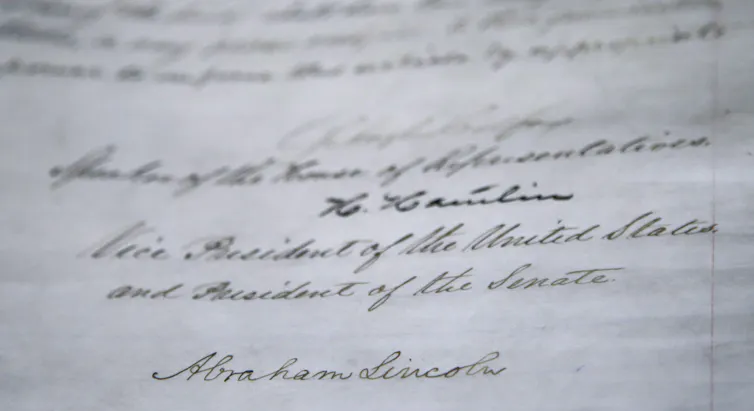 power to enforce this article by appropriate
Schuyler Colfax
Speaker of the House of Representatives.
H. Hamlin
Vice President of the United States
and President of the Senate.
Abraham Lincoln